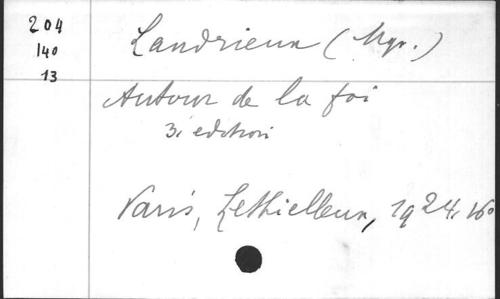 204
140
13
Landrieux (Mgr.)
Autour de la foi
3e edition
Paris, Lethielleux, 1924, 16o